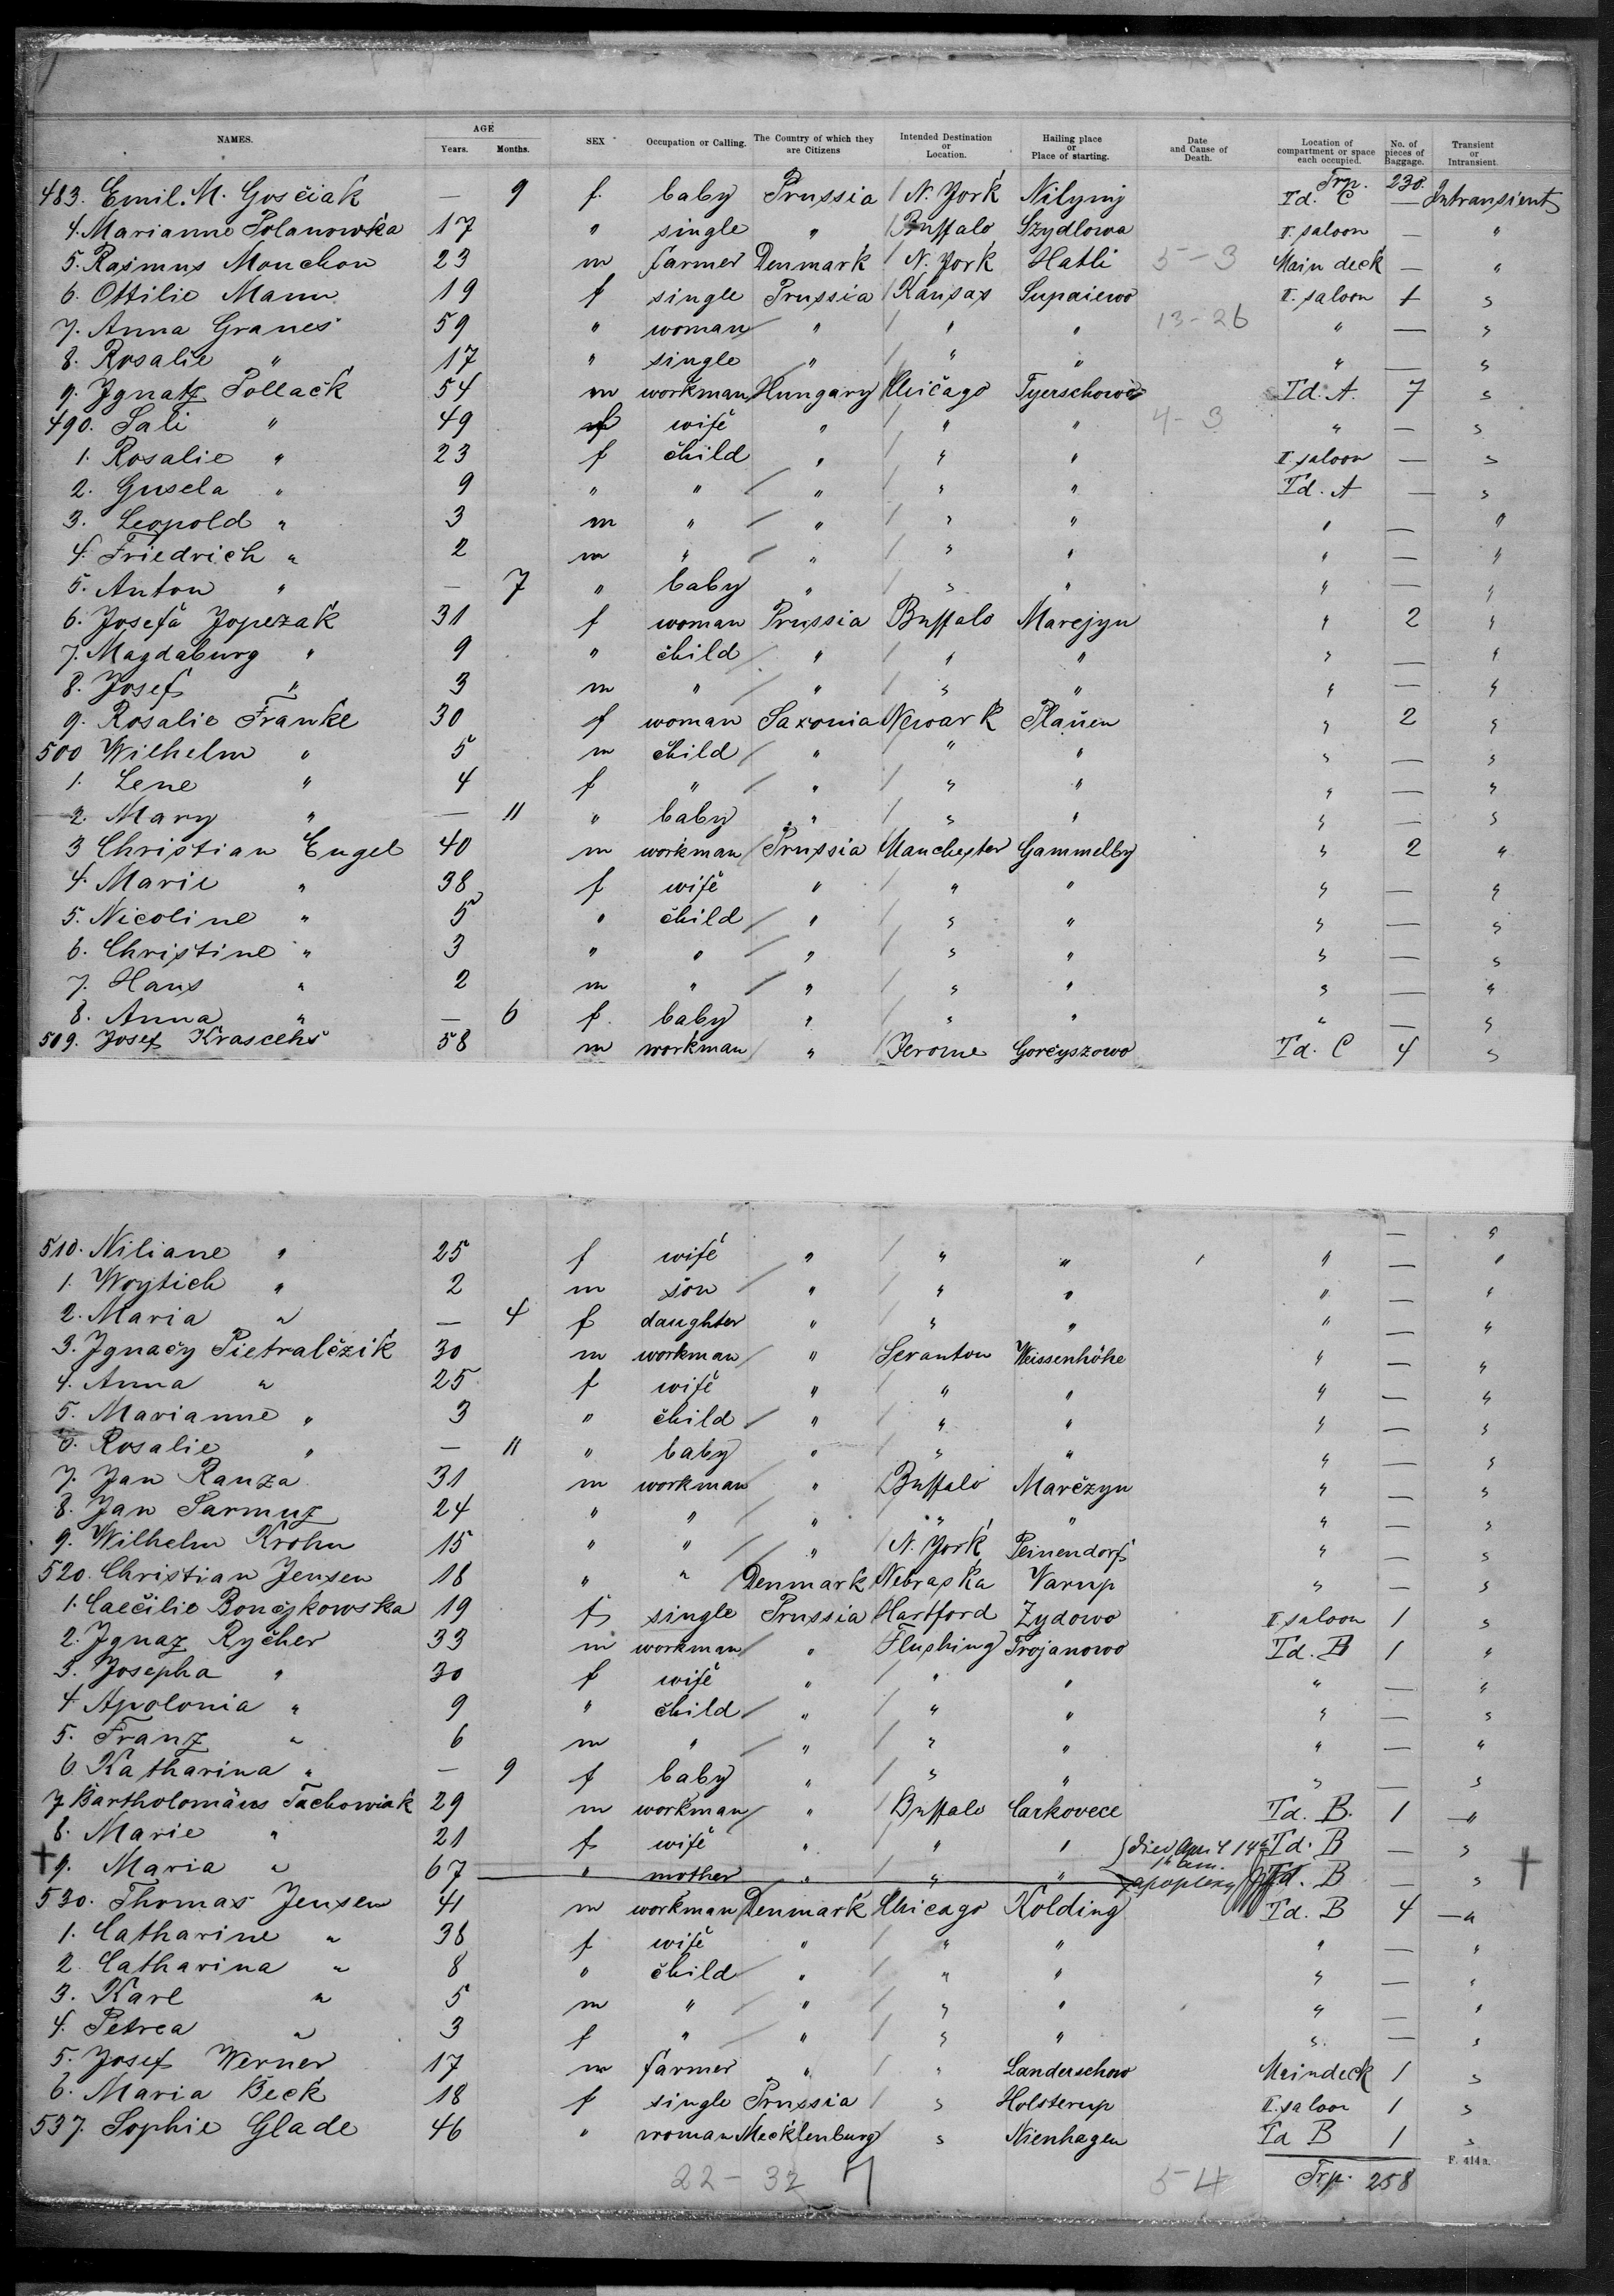 NAMES. AGE Years. Months. SEX Occupation or Calling. The Country of which they are Citizens Intended Destination or Location. Hailing place or Place of starting. Date and Cause of Death. Location of compartment or space each occupied. No. of pieces of Baggage. Transient or Intransient.
Trp. 230.
483. Emil. M. Gosčiak — 9 f. baby Prussia N. York Td. C — Intransient
4. Marianne Polanowska 17 " single " Buffalo Szydlowa II. saloon — "
5. Rasmus Monchon 23 m farmer Denmark N. York Hatli 5-3 Main deck — "
6. Ottilie Mann 19 f single Prussia Kansas Supaiewo II. saloon 1 "
7. Anna Granes 59 " woman " " " 13-26 " — "
8. Rosalie " 17 " single " " " " — "
9. Ignatz Pollack 54 m workman Hungary Chicago Tyerschowa Td. A. 7 "
490. Sali " 49 f wife " " " 4-3 " — "
1. Rosalie " 23 f child " " " II. saloon — "
2. Gusela " 9 " " " " " Td. A — "
3. Leopold " 3 m " " " " " — "
4. Friedrich " 2 m " " " " " — "
5. Anton " — 7 " baby " " " " — "
6. Josefa Jopezak 31 f woman Prussia Buffalo Marejyn " 2 "
7. Magdaburg " 9 " child " " " " — "
8. Josef " 3 m " " " " " — "
9. Rosalie Franke 30 f woman Saxonia Newark Plaŭen " 2 "
500 Wilhelm " 5 m child " " " " — "
1. Lene " 4 f " " " " " — "
2. Mary " — 11 " baby " " " " — "
3 Christian Engel 40 m workman Prussia Manchester Gammelby " 2 "
4. Marie " 38 f wife " " " " — "
5. Nicoline " 5 " child " " " " — "
6. Christine " 3 " " " " " " — "
7. Hans " 2 m " " " " " — "
8. Anna " — 6 f. baby " " " " — "
509. Josef Krascehs 58 m workman " Jerome Gorčyszowo Td. C 4 "
— "
510. Niliane " 25 f wife " " " " — "
1. Woytich " 2 m son " " " " — "
2. Maria " — 4 f daughter " " " " — "
3. Ignačy Pietralčzik 30 m workman " Scranton Weissenhöhe " — "
4. Anna " 25 f wife " " " " — "
5. Marianne " 3 " child " " " " — "
6. Rosalie " — 11 " baby " " " " — "
7. Jan Ranza 31 m workman " Buffalo Marčzyn " — "
8. Jan Sarmuz 24 " " " " " " — "
9. Wilhelm Krohn 15 " " " N. York Peinendorf " — "
520. Christian Jensen 18 " " Denmark Nebraska Varup " — "
1. Caečilie Bončykowska 19 f single Prussia Hartford Zydowo II saloon 1 "
2. Ignaz Ryčher 33 m workman " Flushing Trojanowo Td. B 1 "
3. Josepha " 30 f wife " " " " — "
4 Apolonia " 9 " child " " " " — "
5. Franz " 6 m " " " " " — "
6 Katharina " — 9 f baby " " " " — "
7 Bartholomäus Tachowiak 29 m workman " Buffalo Carkovece Td. B. 1 — "
8. Marie " 21 f wife " " " Td. B — "
9. Maria " 67 " mother " " " died April 14th 1h am. apoplexy Td. B — "
530. Thomas Jensen 41 m workman Denmark Chicago Kolding Td. B 4 — "
1. Catharine " 38 f wife " " " " — "
2 Catharina " 8 " child " " " " — "
3. Karl " 5 m " " " " " — "
4. Petrea " 3 f " " " " " — "
5. Josef Werner 17 m farmer " " Landerschow Maindeck 1 "
6. Maria Beck 18 f single Prussia " Holsterup II. saloon 1 "
537. Sophie Glade 46 " woman Mecklenburg " Nienhagen Td B 1 "
F. 414 a.
22-32 5-4 Trp. 258